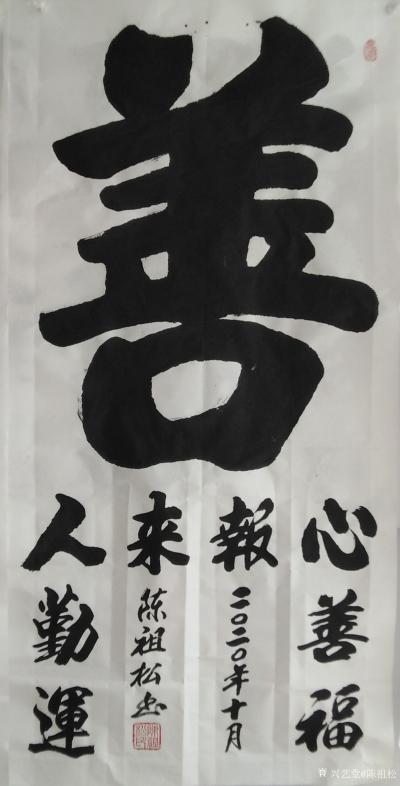 善
心善福
報
二〇二〇年十月
来
陈祖松书
人勤運
兴艺堂@陈祖松